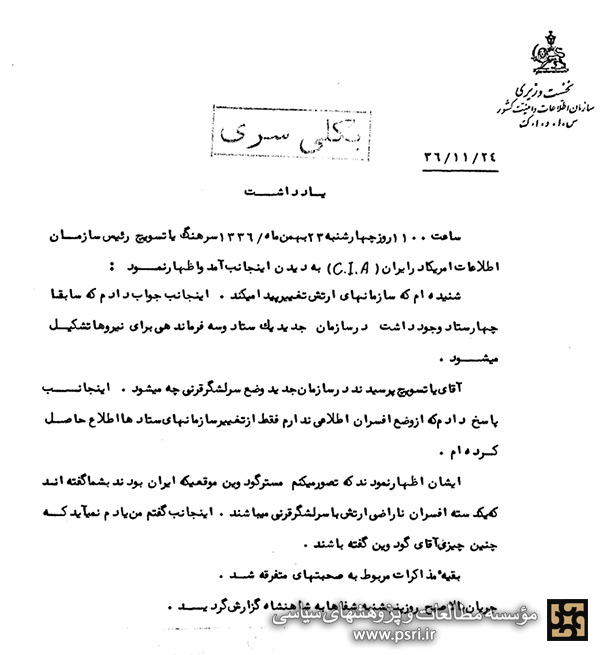 نخست وزیری
سازمان اطلاعات و امنیت کشور
س.ا.و.ا.ک
بکلی سری
۳۶/۱۱/۲٤
یادداشت
ساعت ۱۱۰۰ روز چهارشنبه ۲۳ بهمن ماه/ ۱۳۳۶ سرهنگ یاتسویچ رئیس سازمان
اطلاعات امریکا در ایران ( C.I.A ) به دیدن اینجانب آمد و اظهار نمود :
شنیده ام که سازمانهای ارتش تغییر پیدا میکند . اینجانب جواب دادم که سابقا
چهار ستاد وجود داشت در سازمان جدید یک ستاد و سه فرماندهی برای نیروها تشکیل
میشود .
آقای یاتسویچ پرسیدند در سازمان جدید وضع سرلشگر قرنی چه میشود . اینجانب
پاسخ دادم که از وضع افسران اطلاعی ندارم فقط از تغییر سازمانهای ستادها اطلاع حاصل
کرده ام .
ایشان اظهار نمودند که تصور میکنم مستر گودوین موقعیکه ایران بودند بشما گفته اند
که یکدسته افسران ناراضی ارتش با سرلشگر قرنی میباشند . اینجانب گفتم من یادم نمیآید که
چنین چیزی آقای گودوین گفته باشند .
بقیه مذاکرات مربوط به صحبتهای متفرقه شد .
جریان بالا صبح روز پنجشنبه شفاها به شاهنشاه گزارش گردید .
مؤسسه مطالعات و پژوهشهای سیاسی
www.psri.ir